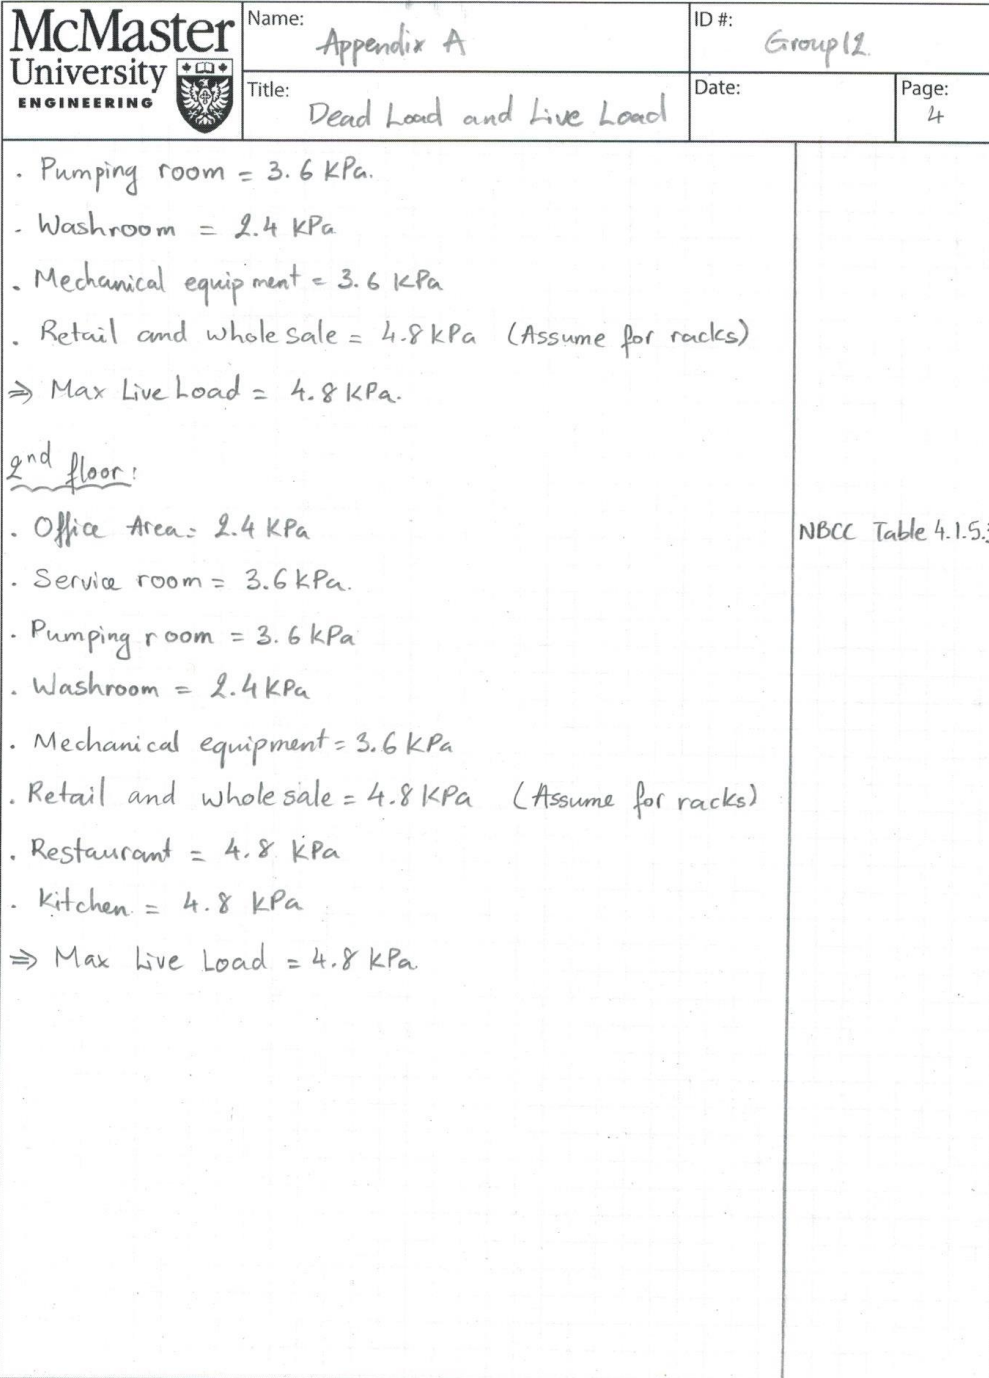 McMaster
University
ENGINEERING
Name:
Appendix A
ID #:
Group 12
Title:
Dead Load and Live Load
Date:
Page:
4
. Pumping room = 3.6 KPa.
- Washroom = 2.4 KPa
. Mechanical equipment = 3.6 KPa
. Retail and whole sale = 4.8 KPa (Assume for racks)
⇒ Max Live Load = 4.8 KPa.
2nd floor:
. Office Area = 2.4 KPa
NBCC Table 4.1.5.3
. Service room = 3.6 KPa.
. Pumping room = 3.6 KPa
. Washroom = 2.4 KPa
. Mechanical equipment = 3.6 KPa
. Retail and whole sale = 4.8 KPa (Assume for racks)
. Restaurant = 4.8 KPa
. Kitchen = 4.8 KPa
⇒ Max Live Load = 4.8 KPa.